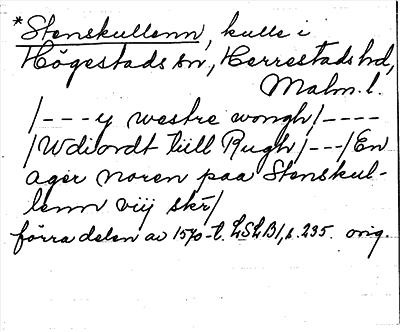 *Stenskullenn, kulle i
Högestads sn, Herrestads hd,
Malm. l.
/---y westre wongh/----
/Wdi ordt till Rugh/---/En
ager noren paa Stenskul-
lenn vij skr/
förra delen av 1570-t. LSLB1, s. 235. orig.